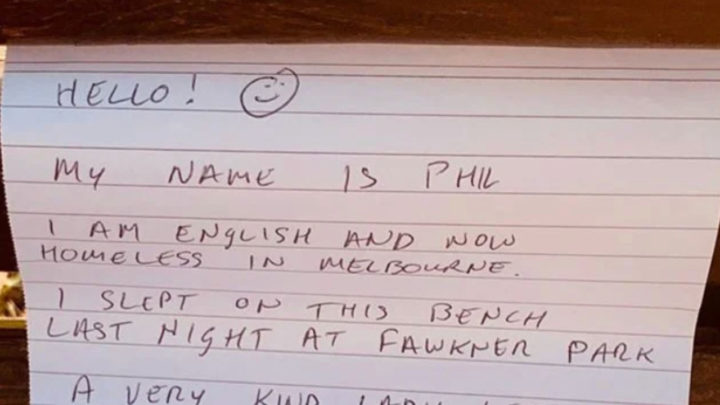 HELLO!
MY NAME IS PHIL
I AM ENGLISH AND NOW
HOMELESS IN MELBOURNE.
I SLEPT ON THIS BENCH
LAST NIGHT AT FAWKNER PARK
A VERY KIND LADY